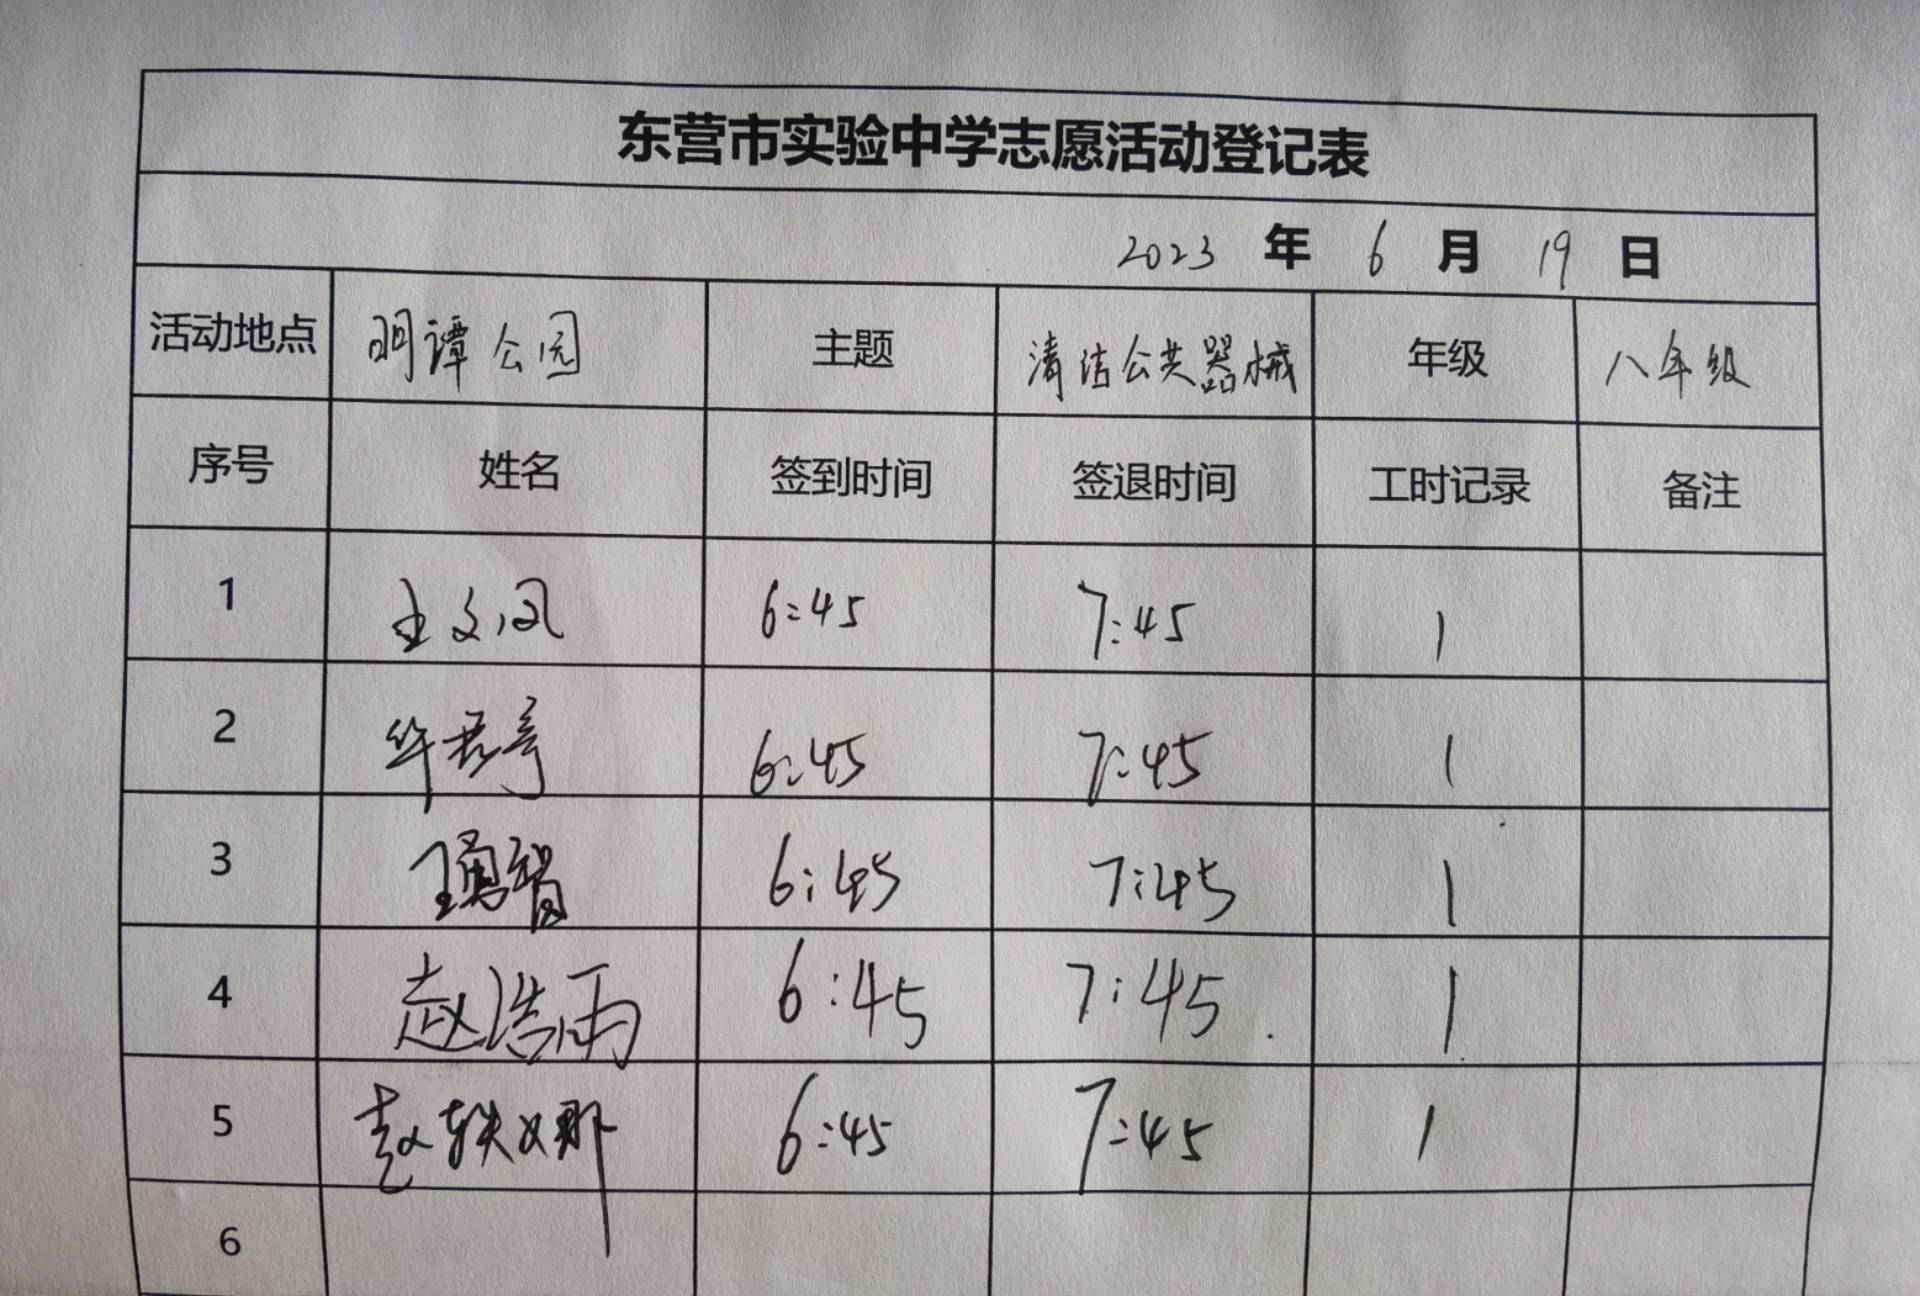 东营市实验中学志愿活动登记表
2023 年 6 月 19 日
活动地点 明谭公园 主题 清洁公共器械 年级 八年级
序号 姓名 签到时间 签退时间 工时记录 备注
1 王文凤 6:45 7:45 1
2 6:45 7:45 1
3 6:45 7:45 1
4 赵浩雨 6:45 7:45 1
5 赵轶娜 6:45 7:45 1
6